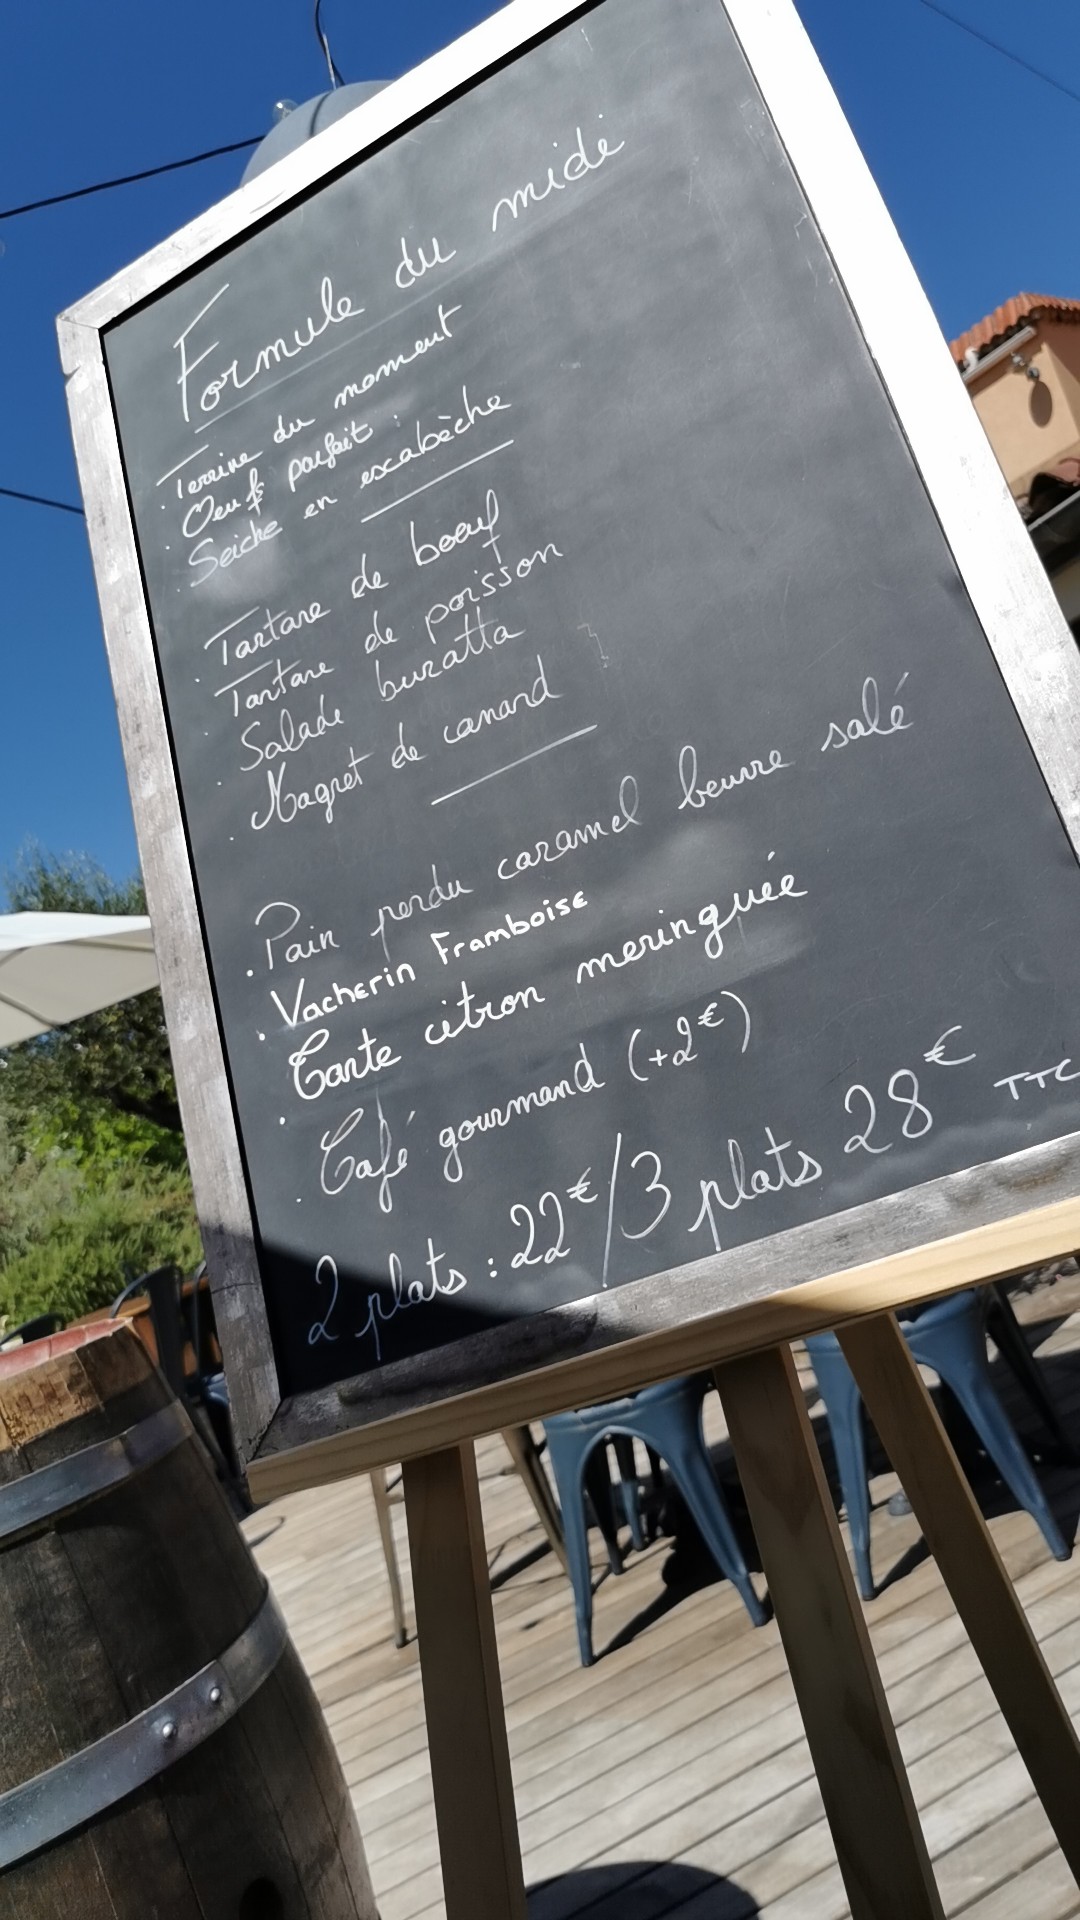 Formule du midi
. Terrine du moment
. Oeufs parfait :
. Seiche en escabèche
. Tartare de boeuf
. Tartare de poisson
. Salade buratta
. Magret de canard
. Pain perdu caramel beurre salé
. Vacherin Framboise
. Tarte citron meringuée
. Café gourmand (+2€)
2 plats : 22€/3 plats 28€ TTC